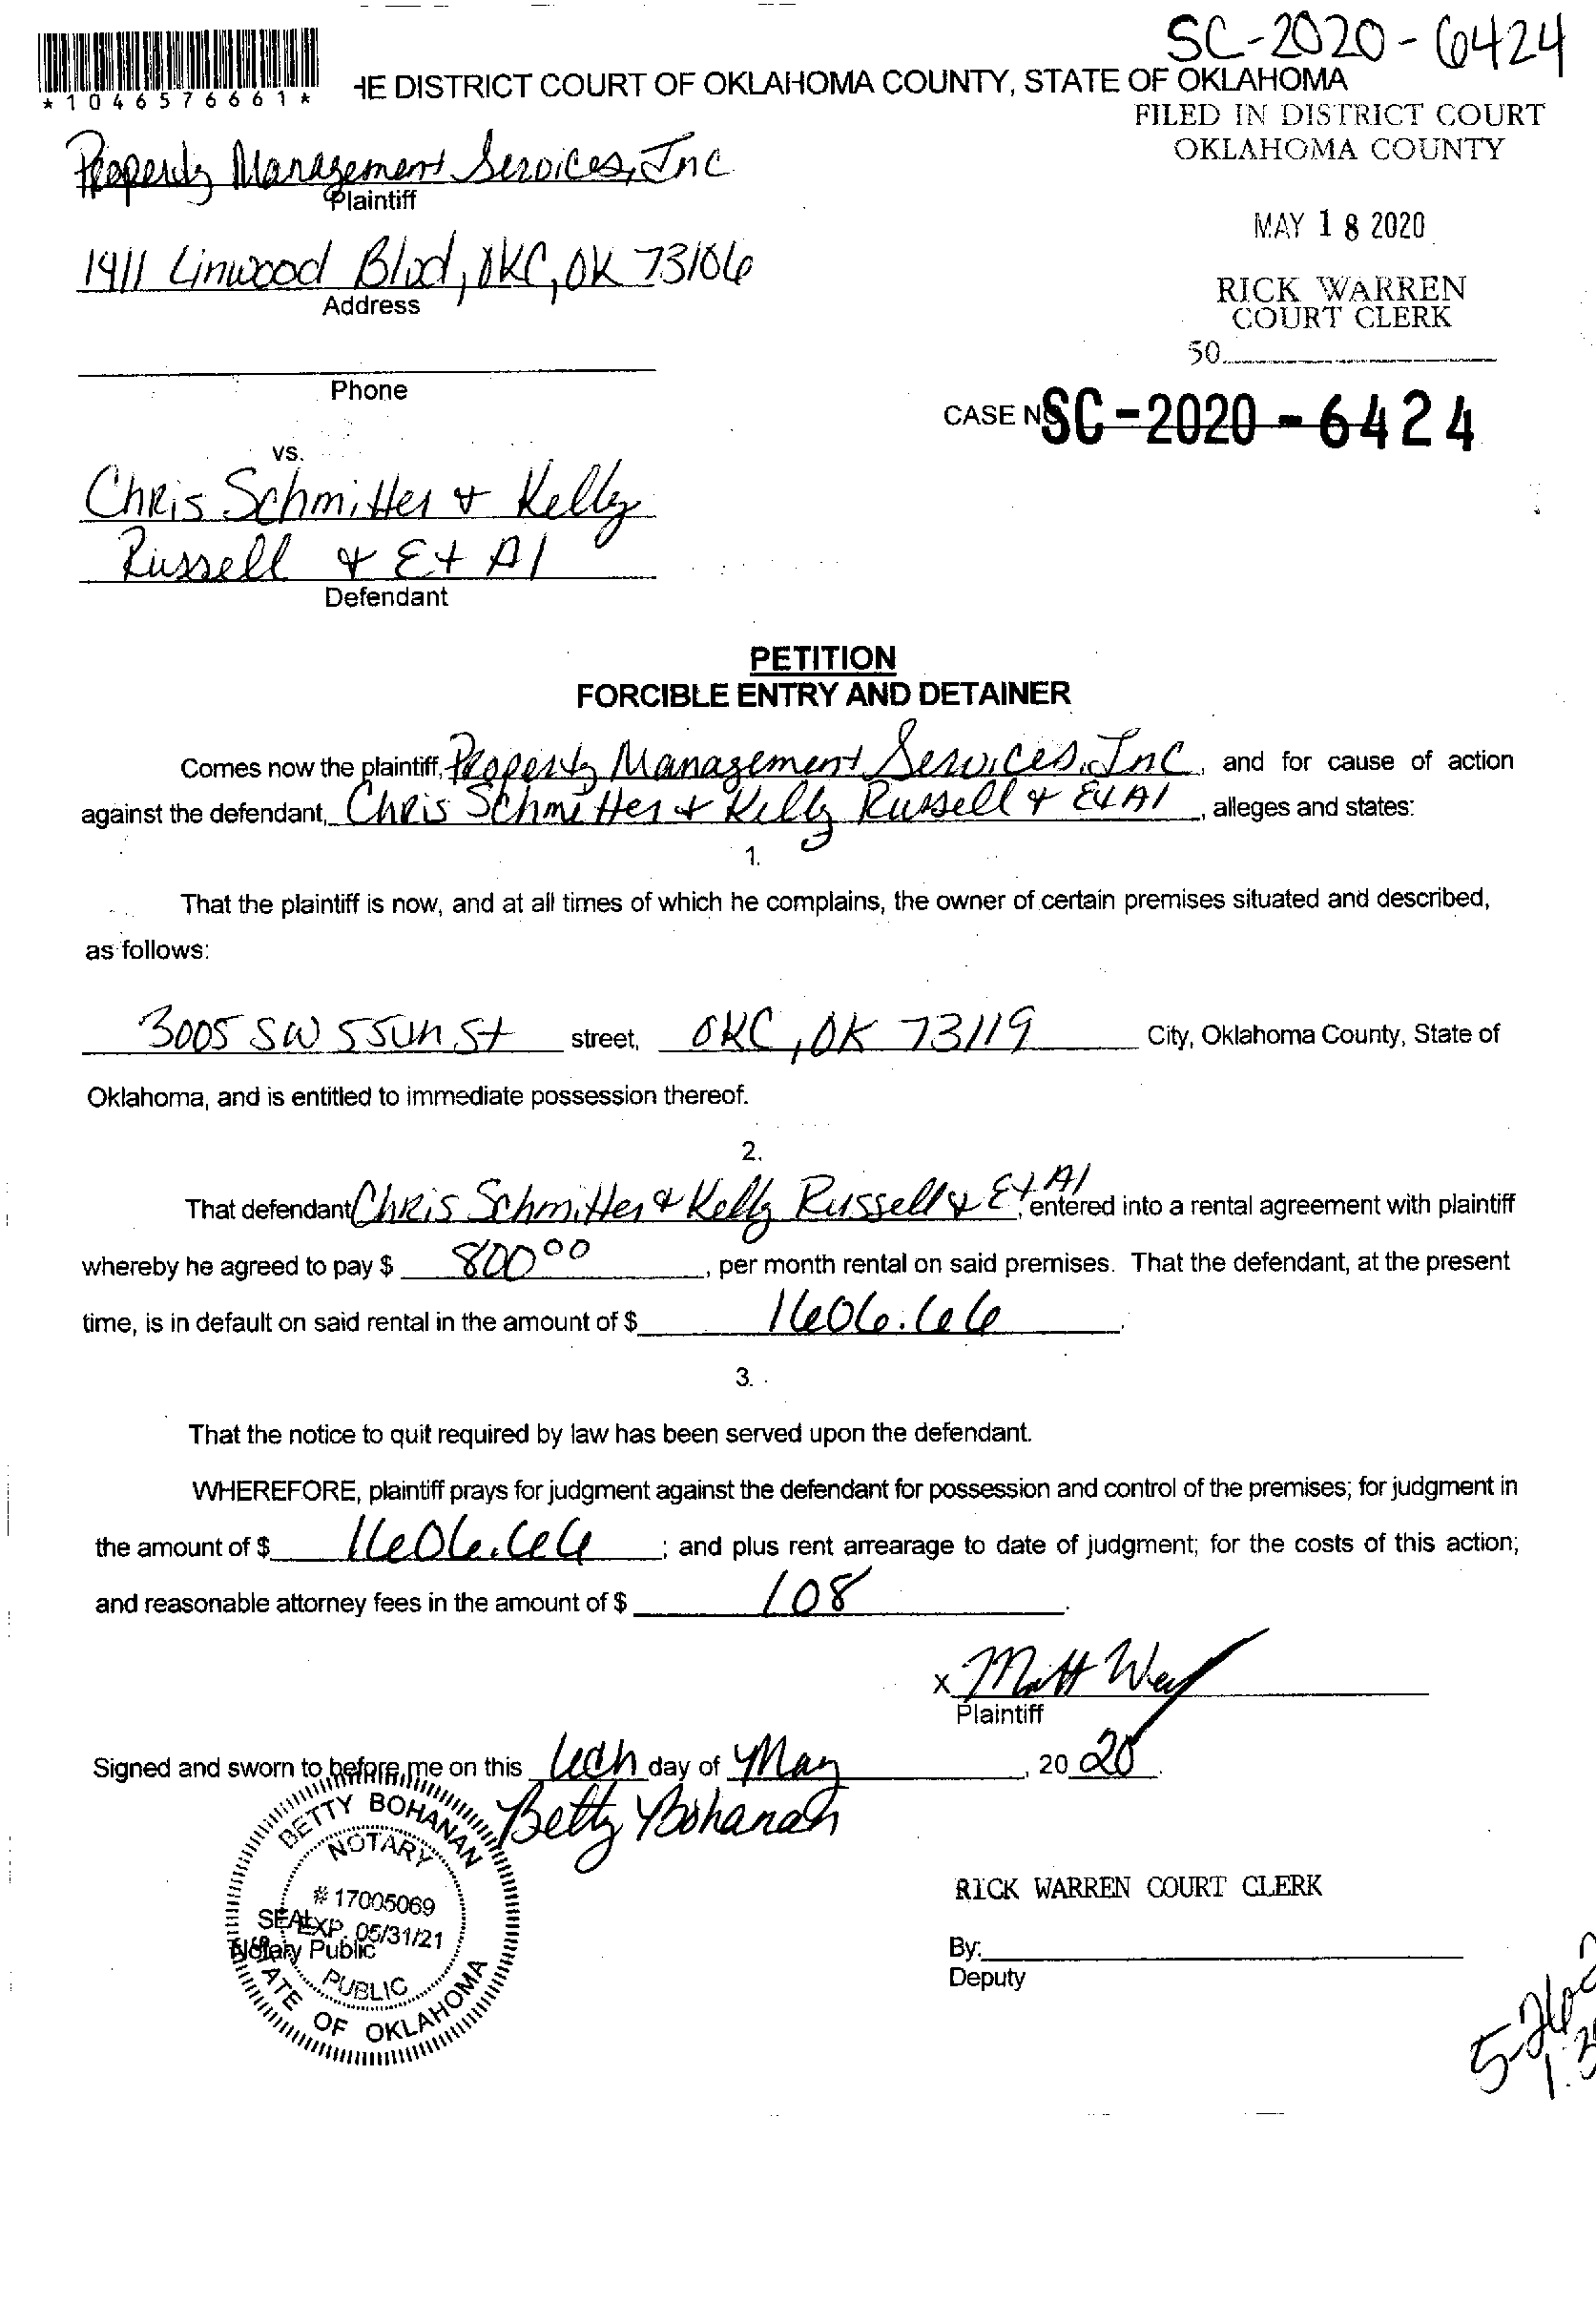 SC-2020-6424
*1046576661*
HE DISTRICT COURT OF OKLAHOMA COUNTY, STATE OF OKLAHOMA
FILED IN DISTRICT COURT
OKLAHOMA COUNTY
Property Management Services, Inc
Plaintiff
MAY 18 2020
1911 Linwood Blvd, OKC, OK 73106
Address
RICK WARREN
COURT CLERK
50
Phone
CASE NO SC-2020-6424
vs.
Chris Schmitter & Kelly
Russell & Et Al
Defendant
PETITION
FORCIBLE ENTRY AND DETAINER
Comes now the plaintiff, Property Management Services, Inc, and for cause of action
against the defendant, Chris Schmitter & Kelly Russell & Et Al, alleges and states:
1.
That the plaintiff is now, and at all times of which he complains, the owner of certain premises situated and described,
as follows:
3005 SW 55th St street, OKC, OK 73119 City, Oklahoma County, State of
Oklahoma, and is entitled to immediate possession thereof.
2.
That defendant Chris Schmitter & Kelly Russell & Et Al, entered into a rental agreement with plaintiff
whereby he agreed to pay $ 800.00, per month rental on said premises. That the defendant, at the present
time, is in default on said rental in the amount of $ 1606.66.
3.
That the notice to quit required by law has been served upon the defendant.
WHEREFORE, plaintiff prays for judgment against the defendant for possession and control of the premises; for judgment in
the amount of $ 1606.66; and plus rent arrearage to date of judgment; for the costs of this action;
and reasonable attorney fees in the amount of $ 108.
x Matt
Plaintiff
Signed and sworn to before me on this day of May, 20 20.
Betty Bohanan
BETTY BOHANAN
NOTARY
# 17005069
SEAL EXP. 05/31/21
Notary Public
PUBLIC
STATE OF OKLAHOMA
RICK WARREN COURT CLERK
By:
Deputy